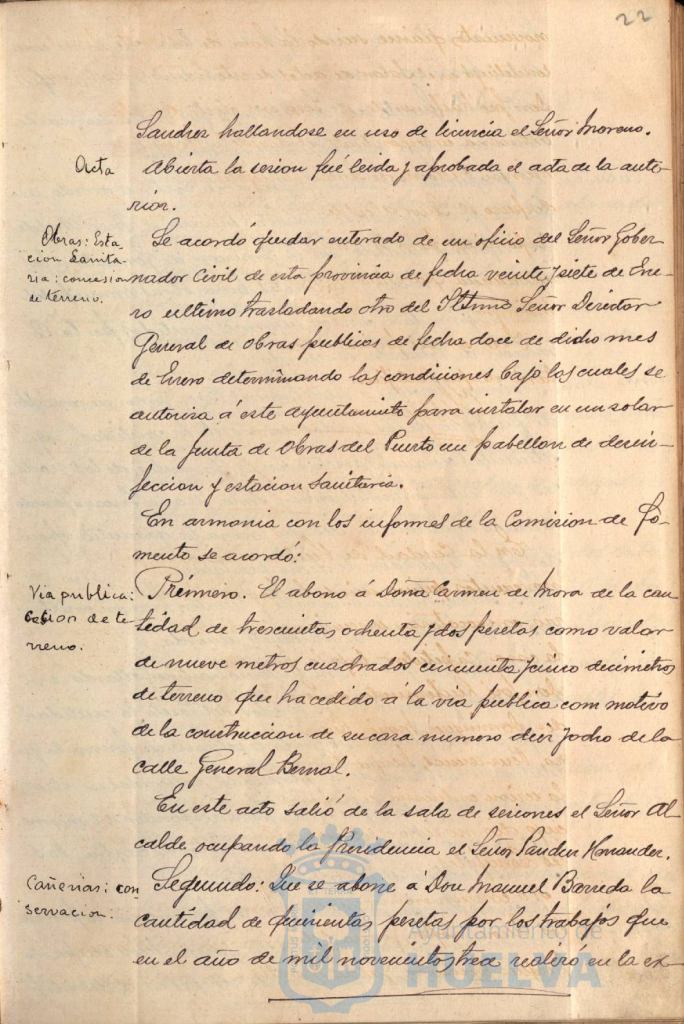 22
Sanchez hallandose en uso de licencia el Señor Moreno.
Acta
Abierta la sesion fué leida y aprobada el acta de la ante-
rior.
Obras: Esta-
cion Sanita-
ria: concesion
de terreno.
Se acordó quedar enterado de un oficio del Señor Gober-
nador Civil de esta provincia de fecha veinte y siete de Ene-
ro ultimo trasladando otro del Iltmo Señor Director
General de Obras publicas de fecha doce de dicho mes
de Enero determinando las condiciones bajo las cuales se
autoriza á este ayuntamiento para instalar en un solar
de la Junta de Obras del Puerto un pabellon de desin-
feccion y estacion sanitaria.
En armonia con los informes de la Comision de Fo-
mento se acordó:
Via publica:
cesion de te-
rreno.
Primero. El abono á Doña Carmen de Mora de la can-
tidad de trescientas ochenta y dos pesetas como valor
de nueve metros cuadrados cincuenta y cinco decimetros
de terreno que ha cedido á la via publica com motivo
de la construccion de su casa numero diez y ocho de la
calle General Bernal.
En este acto salió de la sala de sesiones el Señor Al
calde ocupando la Presidencia el Señor Hernandez.
Cañerias: con
servacion:
Segundo: Que se abone á Don Manuel Barreda la
cantidad de quinientas pesetas por los trabajos que
en el año de mil novecientos trece realizó en la ex-
Ayuntamiento de
HUELVA